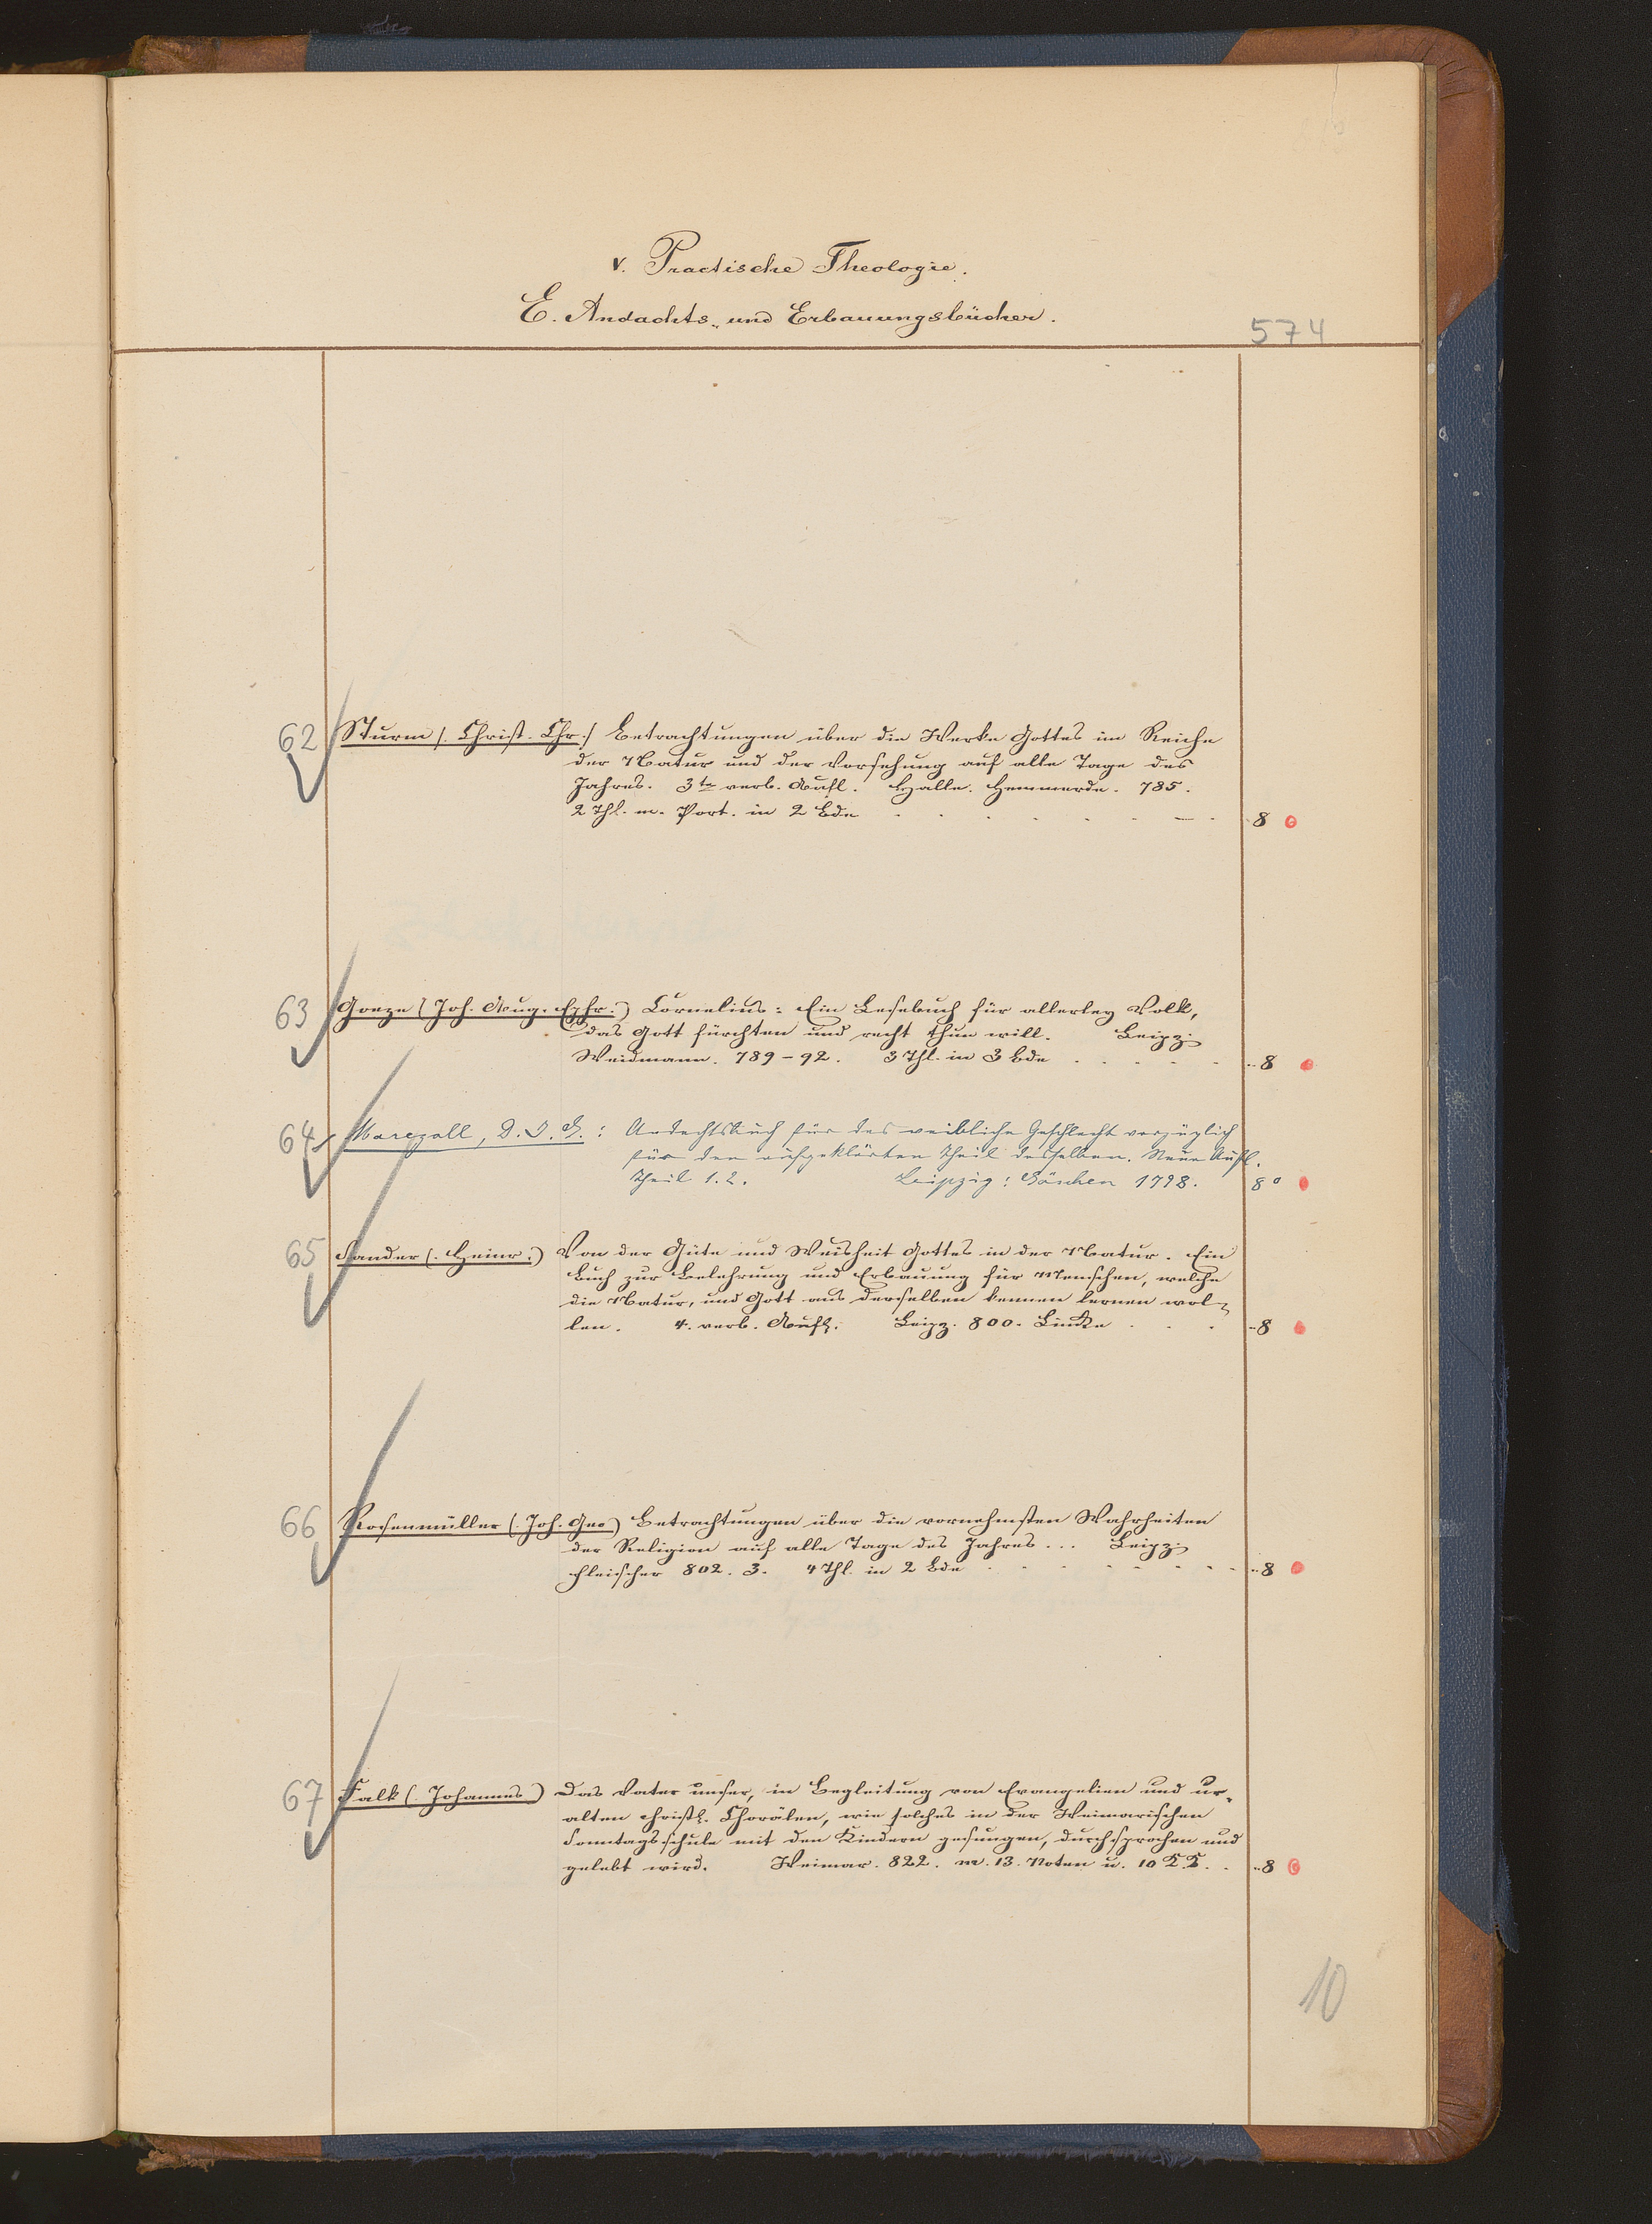 V. Practische Theologie.
E. Andachts- und Erbauungsbücher.
574
62 Sturm (. Christ. Chr.) Betrachtungen über die Werke Gottes im Reiche
der Natur und der Vorsehung auf alle Tage des
Jahres. 3te verb. Aufl. Halle. Hemmerde. 785.
2 Thl. m. Port. in 2 Bde . . . . . . 8
63 Goeze (Joh. Aug. Ephr.) Cornelius: Ein Lesebuch für allerley Volk,
das Gott fürchten und recht thun will. Leipz.
Weidmann. 789-92. 3 Thl. in 3 Bde . . . . . 8
64 Marezoll, D. J. G.: Andachtsbuch für das weibliche Geschlecht vorzüglich
für den aufgeklärten Theil desselben. Neue Aufl.
Theil 1.2. Leipzig: Göschen 1798. 8°
65 Sander (. Heinr.) Von der Güte und Weisheit Gottes in der Natur. Ein
Buch zur Belehrung und Erbauung für Menschen, welche
die Natur, und Gott aus derselben kennen lernen wol-
len. 4. verb. Aufl. Leipz. 800. Lincke . . . 8
66 Rosenmüller (. Joh. Geo) Betrachtungen über die vornehmsten Wahrheiten
der Religion auf alle Tage des Jahres ... Leipz.
Fleischer 802. 3. 4 Thl. in 2 Bde . . . . . . 8
67 Falk (. Johannes) Das Vater unser, in Begleitung von Evangelien und ur-
alten christl. Chorälen, wie solches in der Weimarischen
Sonntagsschule mit den Kindern gesungen, durchsprochen und
gelebt wird. Weimar. 822. m. 13. Noten u. 10 KK. . 8
10